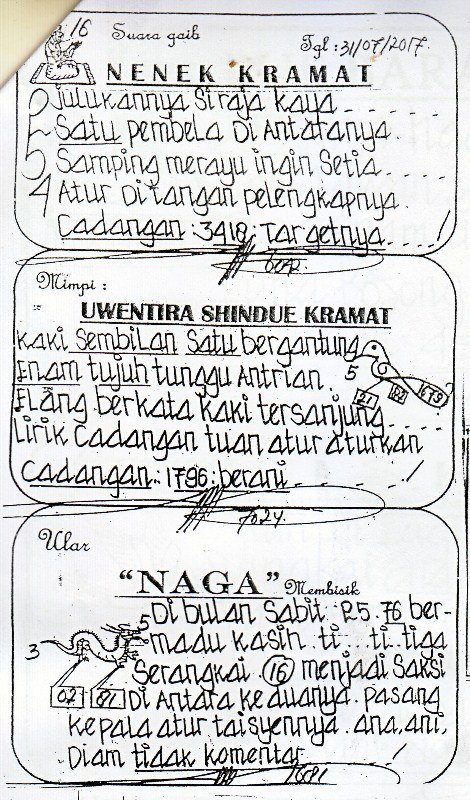 16
Suara gaib
Tgl : 31/07/2017.
NENEK KRAMAT
0 Julukannya Siraja kaya
2 Satu pembela Di Antaranya.
5 Samping merayu ingin Setia
4 Atur Ditangan pelengkapnya.
Cadangan : 3418 : Targetnya
Mimpi :
UWENTIRA SHINDUE KRAMAT
kaki Sembilan Satu bergantung
Enam tujuh tunggu Antrian.
5
21
Elang berkata kaki tersanjung
Lirik Cadangan tuan atur aturkan
Cadangan : 1796 : berani
7024.
Ular
"NAGA" Membisik
Di bulan Sabit. 25.76 ber-
5
madu kasih. ti... ti.. tiga
3
Serangkai (16) menjadi Saksi
02 81
Di Antara keduanya. pasang
kepala atur taisyennya. ana, ani,
Diam tidak komentar